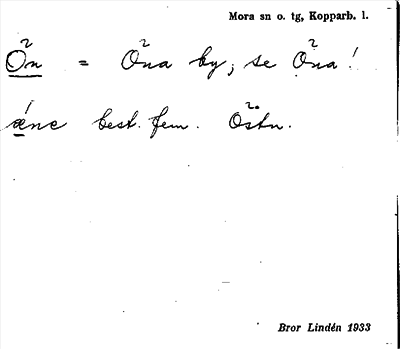 Mora sn o. tg, Kopparb. l.
Ön = Öna by; se Öna!
æne best. fem. Östn.
Bror Lindén 1933